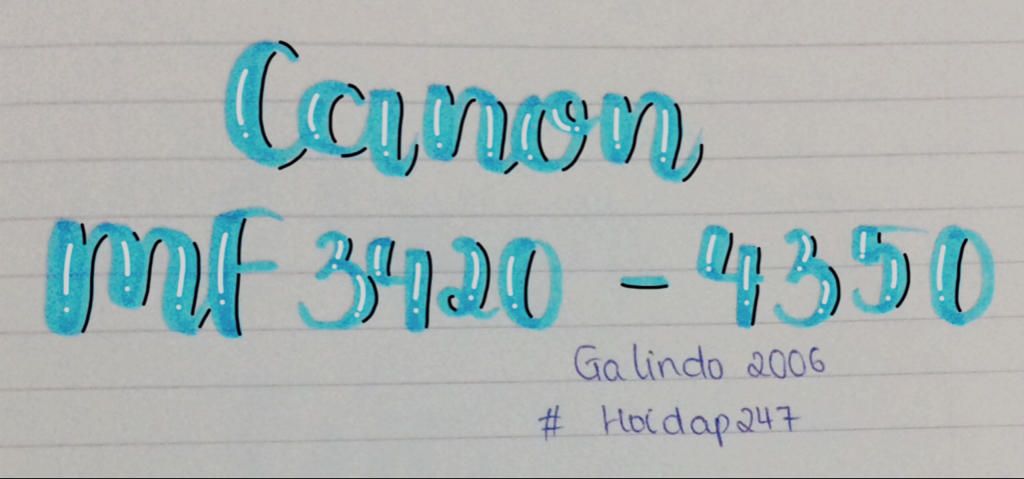 Canon
MF 3420 - 4350
Galindo 2006
# Hoidap247